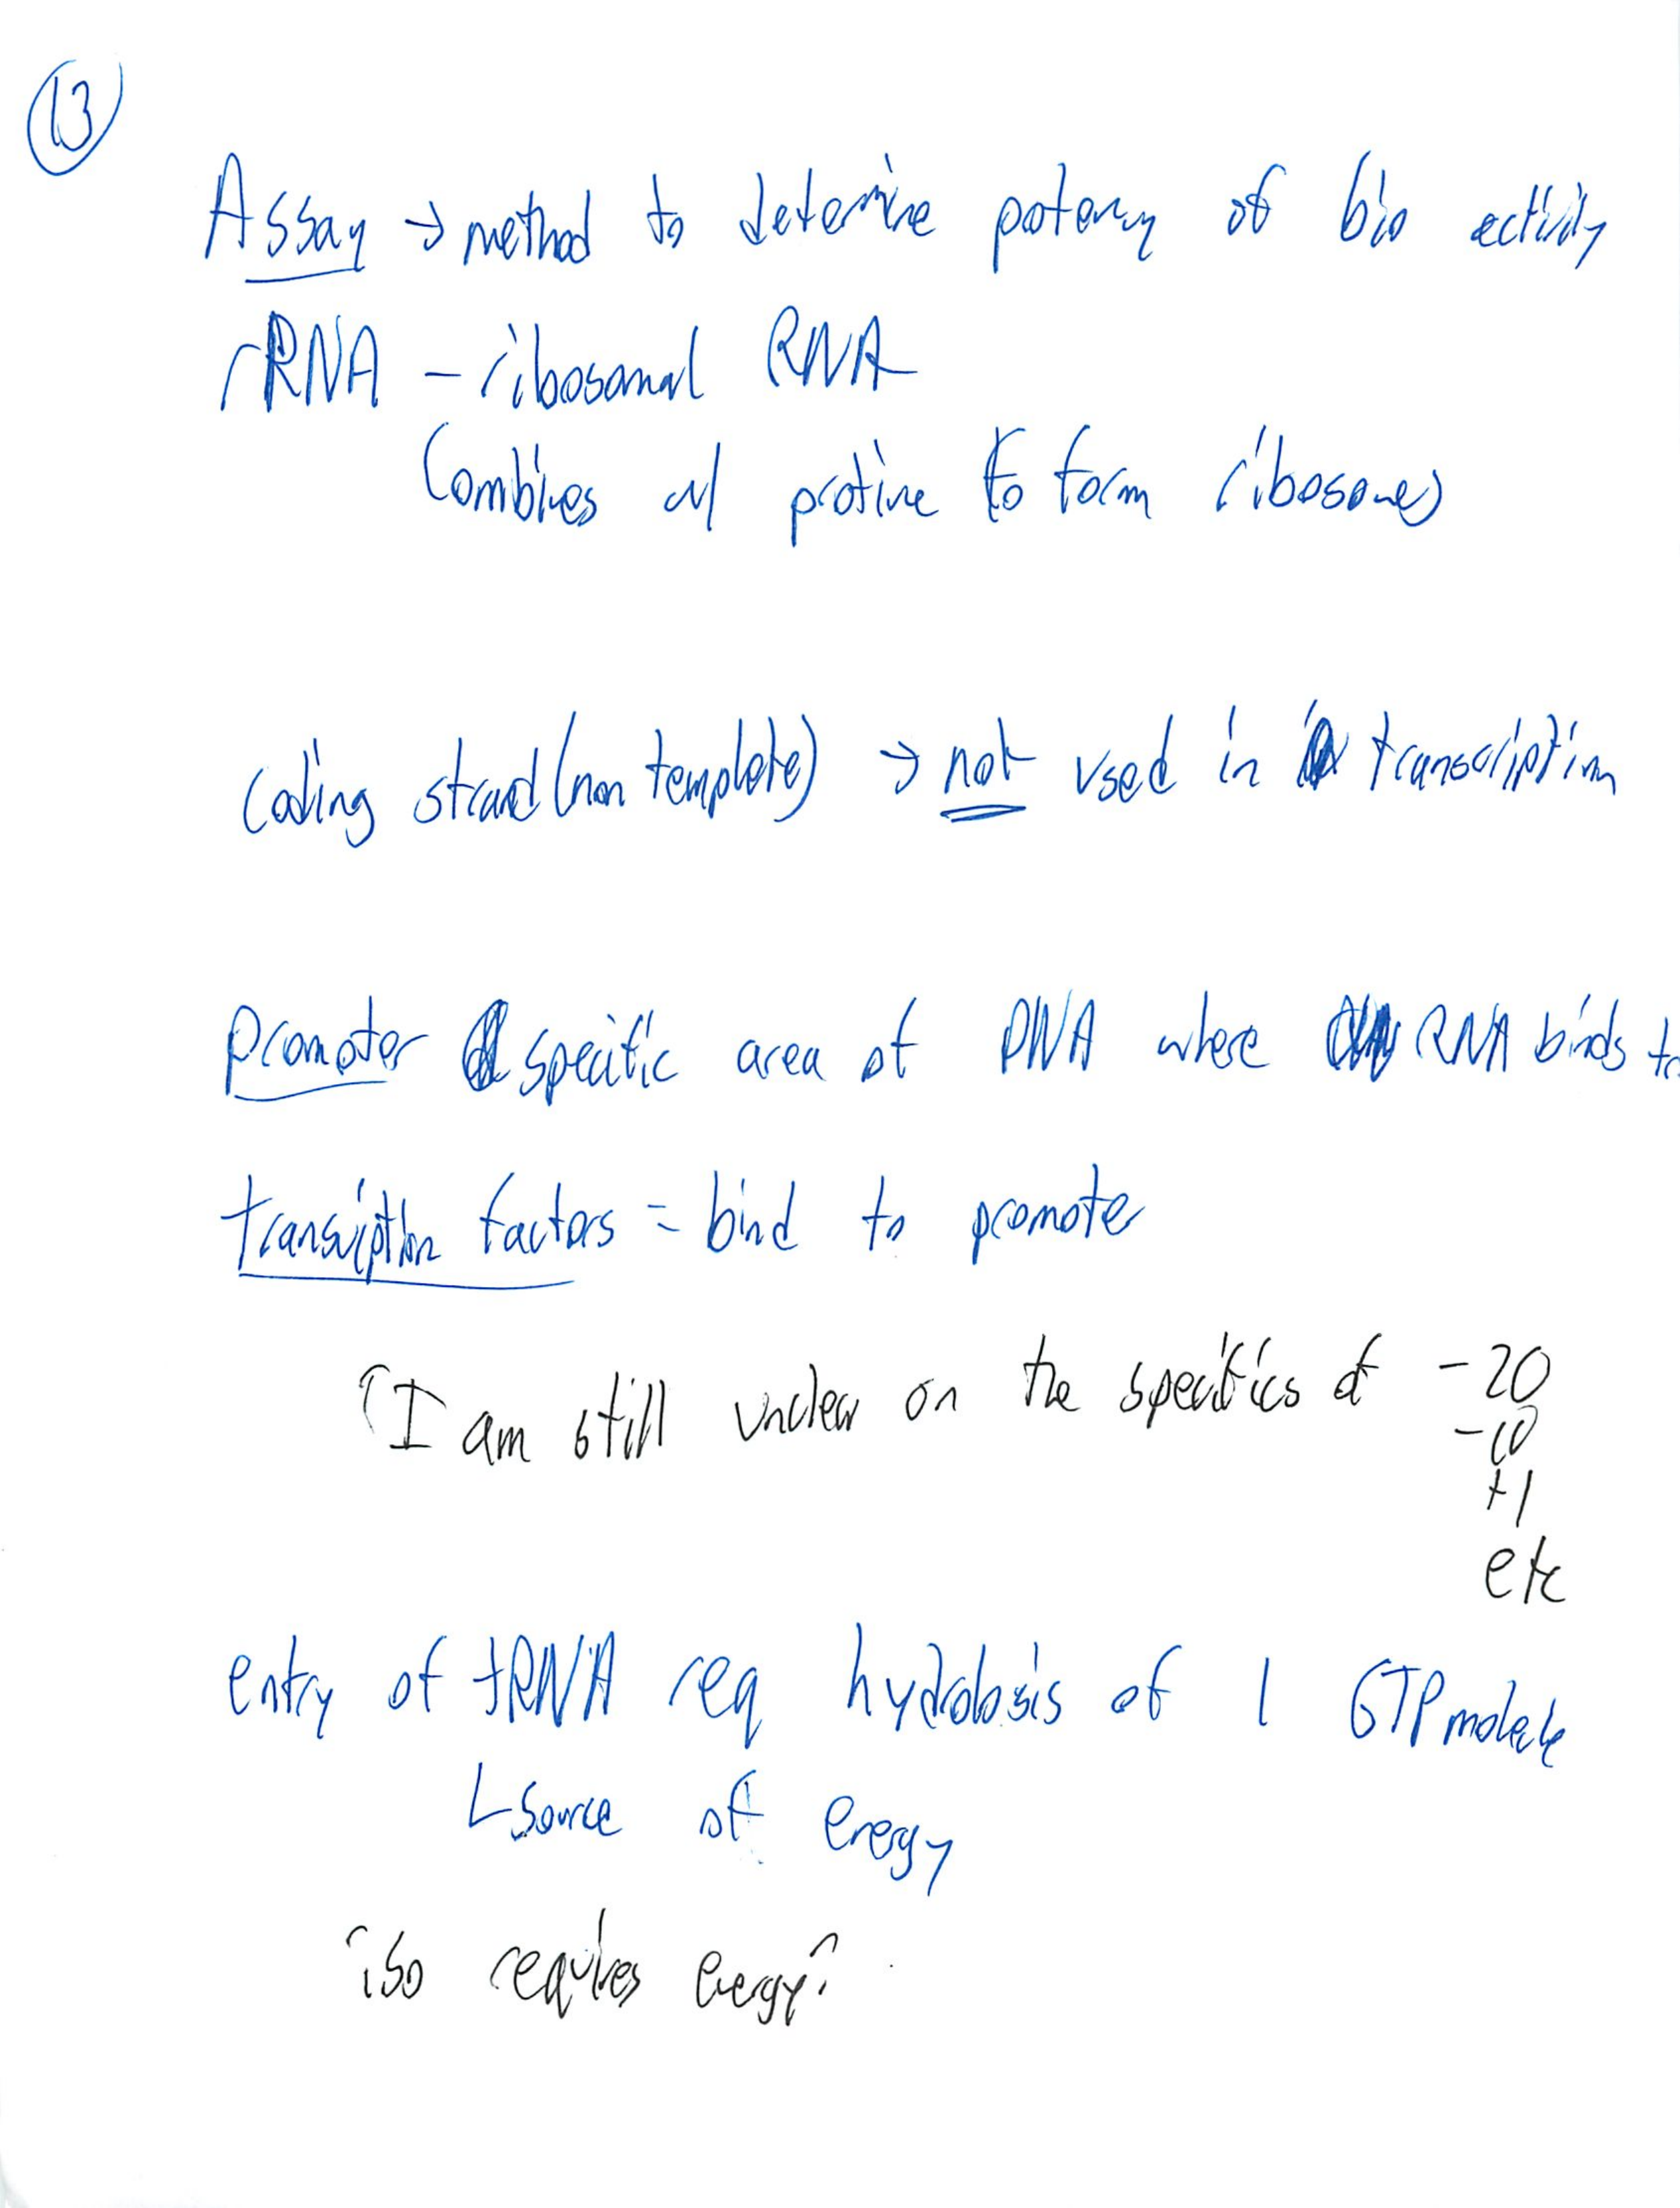 13
Assay → method to determine potency of bio activity
rRNA - ribosomal RNA
Combines w/ protine to form ribosomes
Coding strand (non template) → not used in transcription
Promoter specific area of DNA where RNA binds to
transcription factors = bind to promoter
I am still unclear on the specifics of -20
-10
+1
etc
entry of tRNA req hydrolosis of 1 GTP molecule
Source of energy
so requires energy?